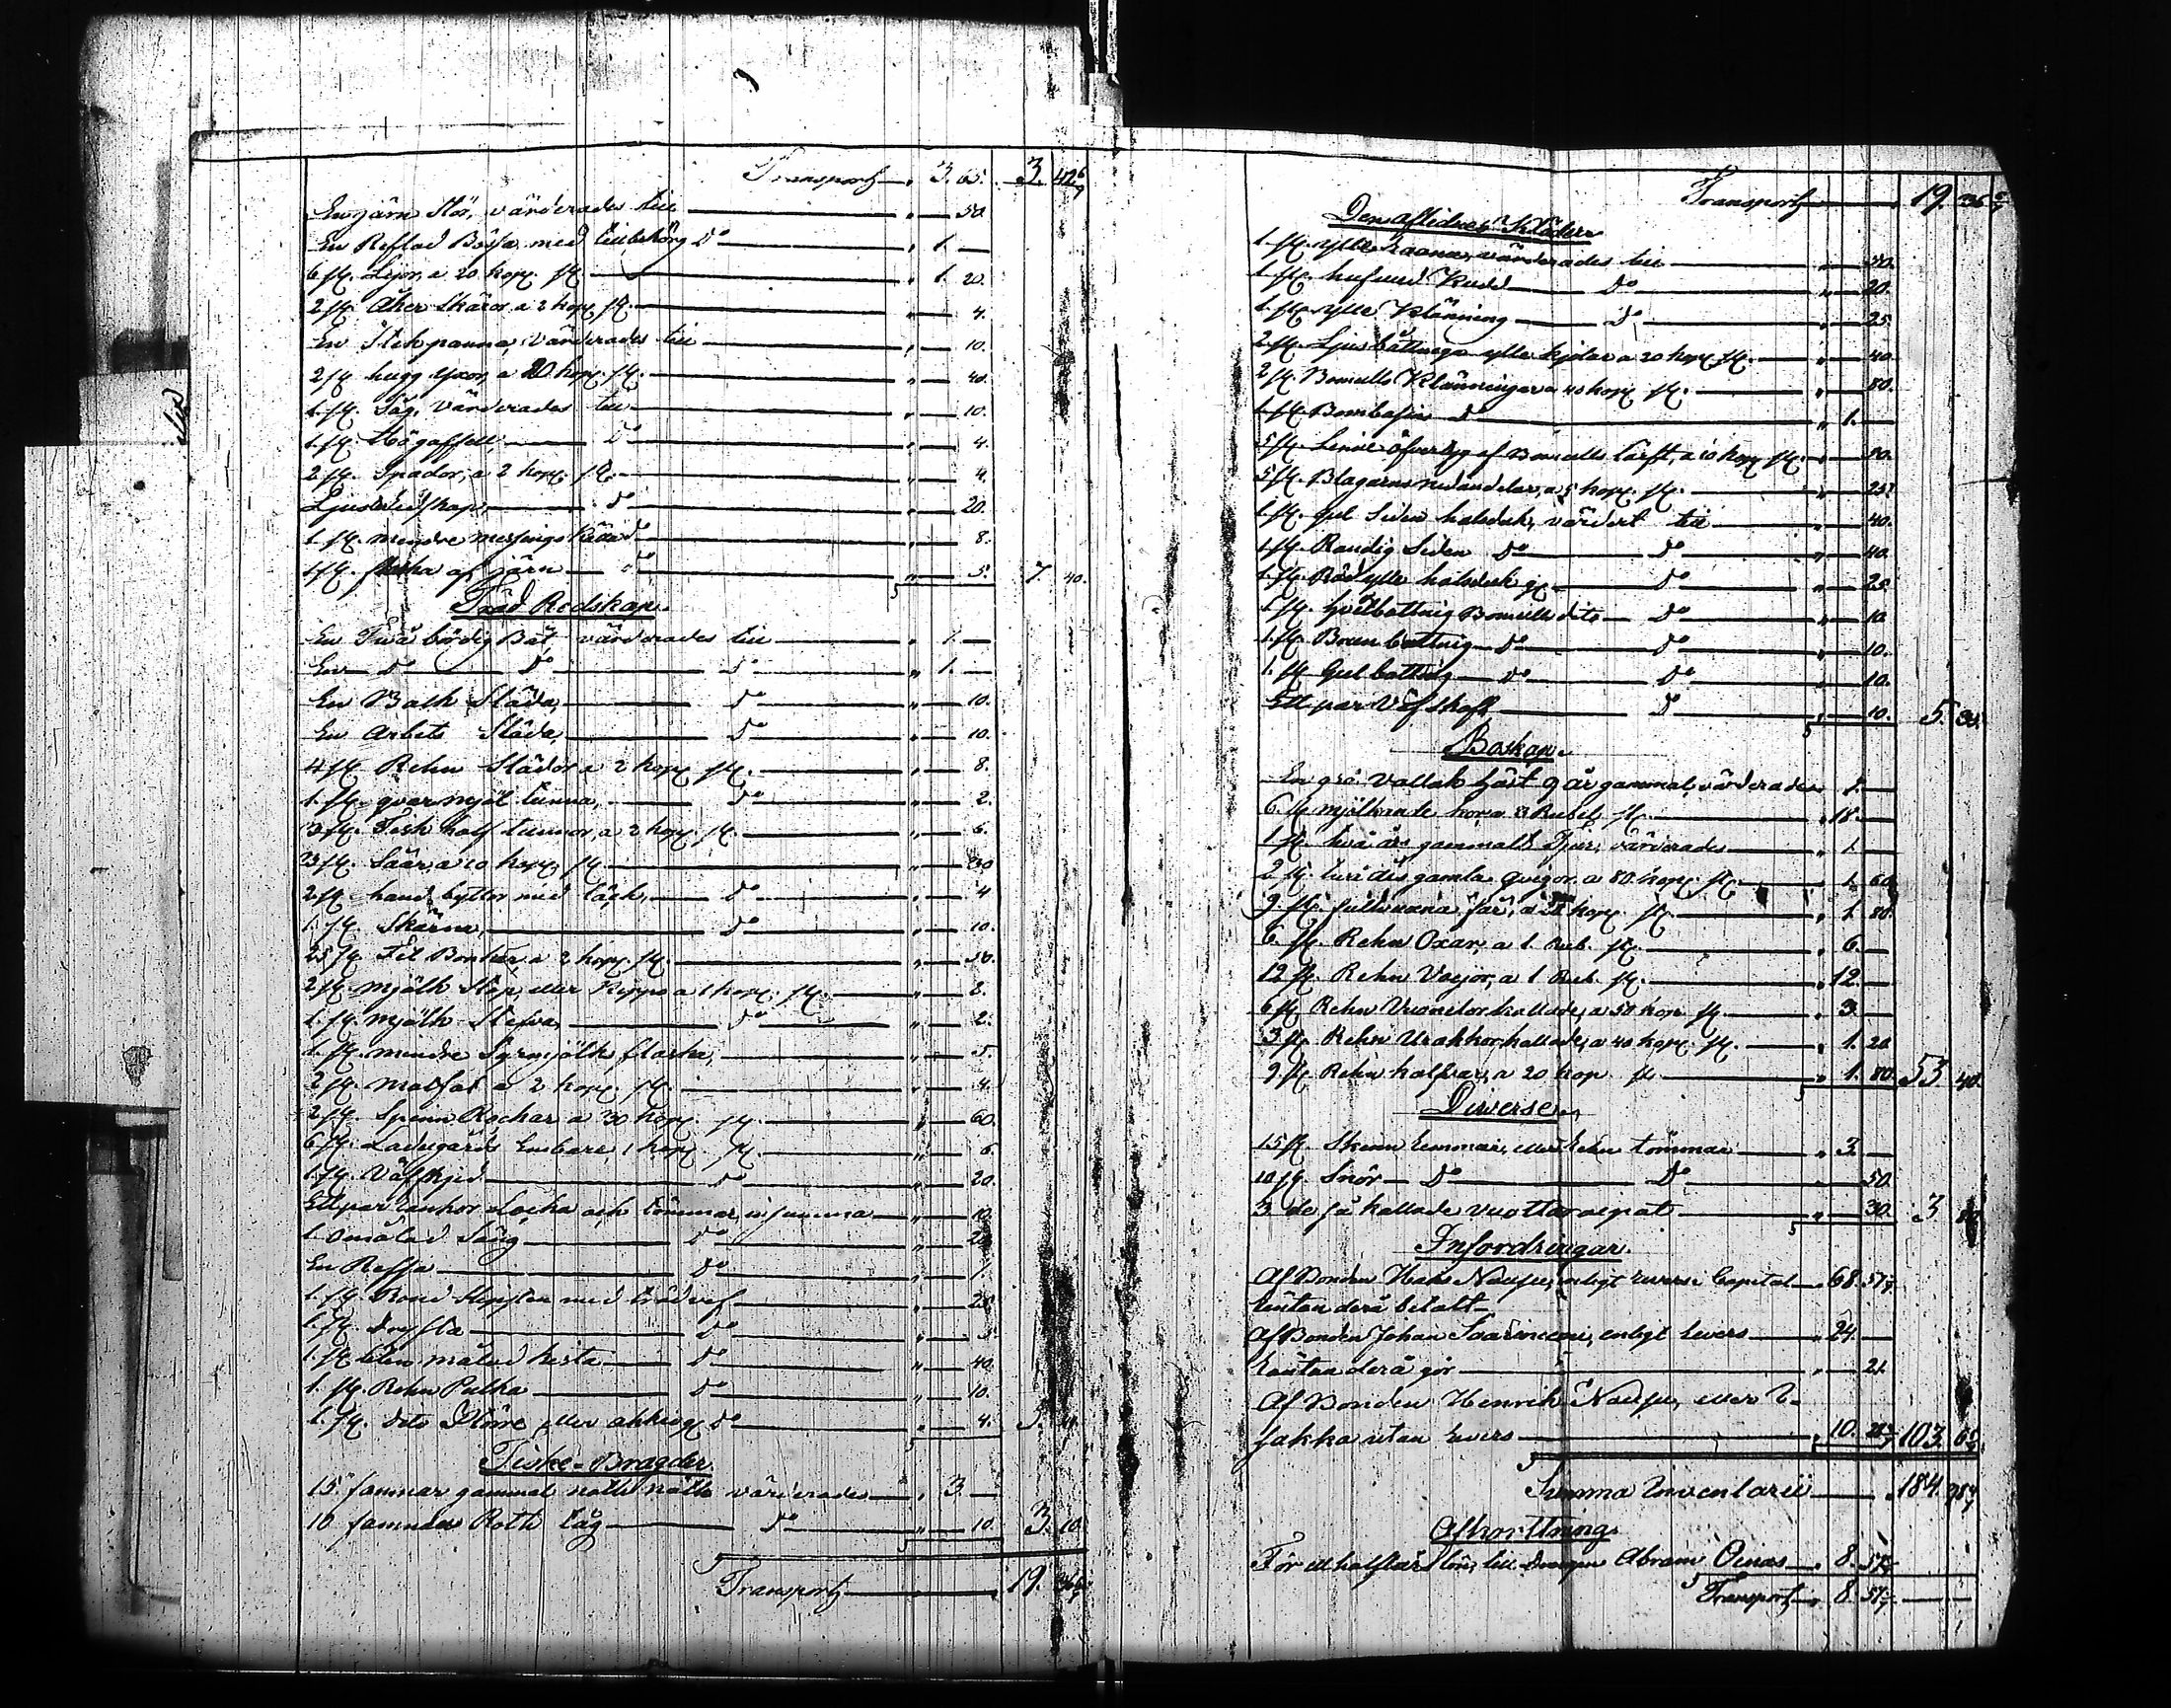 Transport „ 3. 65. 3. 42 6/7
En järn Stör, värderades till „ — 50.
En Reflad Bössa med tillbehörg Do „ 1. —
6 st. Lijor, a 20 kop. st. „ 1. 20.
2 st. Åker Skäror a 2 kop. st. „ — 4.
En Stekpanna, värderades till „ — 10.
2 st. hugg Yxor, a 20 kop. st. „ — 40.
1. st. Såg, Värderades till „ — 10.
1. st. Högaffell Do „ — 4.
2 st. Spador, a 2 kop. st. „ — 4.
Ljus Do „ — 20.
1. st. mindre messings Do „ — 8.
1 st. af järn Do „ — 5. 7. 40.
Träd Redskap.
En Två bördig Båt värderades till „ 1. —
En Do Do Do „ 1. —
En Släda, Do „ — 10.
En Arbets Släda, Do „ — 10.
4 st. Rehn Slädor a 2 kop. st. „ — 8.
1. st. qvarnmjöl tunna, Do „ — 2.
3 st. Fisk half tunnor, a 2 kop. st. „ — 6.
3 st. Såar, a 10 kop. st. „ — 30
2 st. hand byttor med läck, Do „ — 4
1. st. Skärm, Do „ — 10.
25 st. Fil Bunkar, a 2 kop. st. „ — 50.
2 st. mjölk Stäp, eller Kippo a 1 kop. st. „ — 2.
1. st. mjölk Stefva, Do „ — 2.
1. st. mindre Syrmjölk flaska, „ — 5.
2 st. matfat a 2 kop. st. „ — 4.
2 st. Spinn Rockar a 30 kop. st. „ — 60.
6 st. Ladugårds Embare, 1 kop. st. „ — 6
1. st. Väfskjed Do „ — 20.
Ett par Rankor Locka och tömmar, in summa „ — 10.
1. Omålad Säng Do „ — 20
En Do „ — 1.
1. st. med trädvef „ — 25
1. st. Do „ — 5.
1. st. liten målad kista Do „ — 40.
1. st. Rehn Pulka Do „ — 10.
1. st. dito Större eller Do „ — 4. 5.
Fiske-Bragder.
15. famnar gammal nott värderades „ 3. —
10 famnar Noth tåg Do „ — 10. 3. 10.
Transport 19. 36 6/7
Transport 19. 36 6/7
Den aflidnes Kläder
1. st. ylle värderades till „ — 50.
1. st. hufvud Kudd Do „ — 20.
1. st. ylle Klänning Do „ — 25.
2 st. Ljusbåttniga ylle kjolar a 20 kop. st. „ — 40.
2 st. Bomulls Klänningar a 40 kop. st. „ — 80.
1. st. Bombasin Do „ 1. —
5 st. Linne öfvertyg af Bomulls lärft, a 10 kop. st. „ — 50.
5 st. Blagarns nedandelar, a 5 kop. st. „ — 25.
1. st. gul Siden halsduk, värdert till „ — 40.
1. st. Randig Siden Do Do „ — 40.
1. st. Röd ylle halsduk Do „ — 25.
1. st. hvitbottnig Bomulls dito Do „ — 10.
1. st. Brunbottnig Do Do „ — 10.
1. st. Gulbottnig Do Do „ — 10.
Ett par Väfskaft Do „ — 10. 5.
Boskap.
En grå Vallak häst 9 år gammal, värderades „ 8. —
6. st. mjölkande kor a 3 Rubel st. „ 18. —
1. st. två års gammalt Djur, värderades „ 1. —
2 st. två års gamla Qvigor, a 80 kop. st. „ 1. 60
9. st. fullvuxna får, a 20 kop. st. „ 1. 80.
6. st. Rehn Oxar, a 1. Rub. st. „ 6. —
12 st. Rehn Vaijor, a 1 Rub. st. „ 12. —
6 st. Rehn Vuonelor kallade, a 50 kop. st. „ 3. —
3 st. Rehn Urakkor kallade, a 40 kop. st. „ 1. 20.
9 st. Rehn kalfvar, a 20 kop. st. „ 1. 80. 53 40.
Diverse.
15 st. Skinn Remmar, eller Rehn tömmar „ 3. —
10 st. Snör Do Do „ — 50.
3 de så kallade „ — 30. 3 80
Infordringar.
Af Bonden Hans enligt revers Capital „ 68. 57 1/7
räntan derå betalt
Af Bonden Johan Saarinen, enligt revers „ 24. —
räntan derå gör „ — 21.
Af Bonden Henrik eller
Jakka utan revers „ 10. 28 103. 6
Summa Inventarii „ 184. 98 4/7
Afkorttning.
För ett halft års lön, till drängen Abram Oinas „ 8. 57 1/7
Transport „ 8. 57 1/7